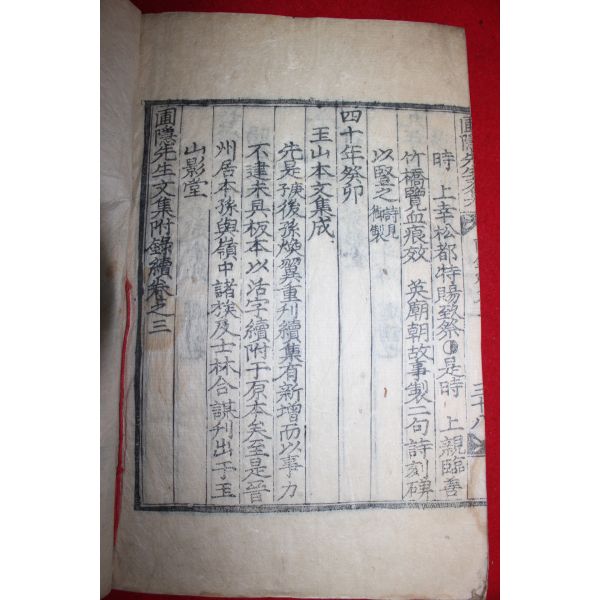 圃隱先生
三十八
時 上幸松都特賜致祭○是時 上親臨善
竹橋覽血痕效 英廟朝故事製二句詩刻碑
以竪之詩見御製
四十年癸卯
玉山本文集成
先是後孫煥翼重刊續集有新增而以事力
不逮未具板本以活字續附于原本矣至是晉
州居本孫與嶺中諸族及士林合謀刊出于玉
山影堂
圃隱先生文集附錄續卷之三